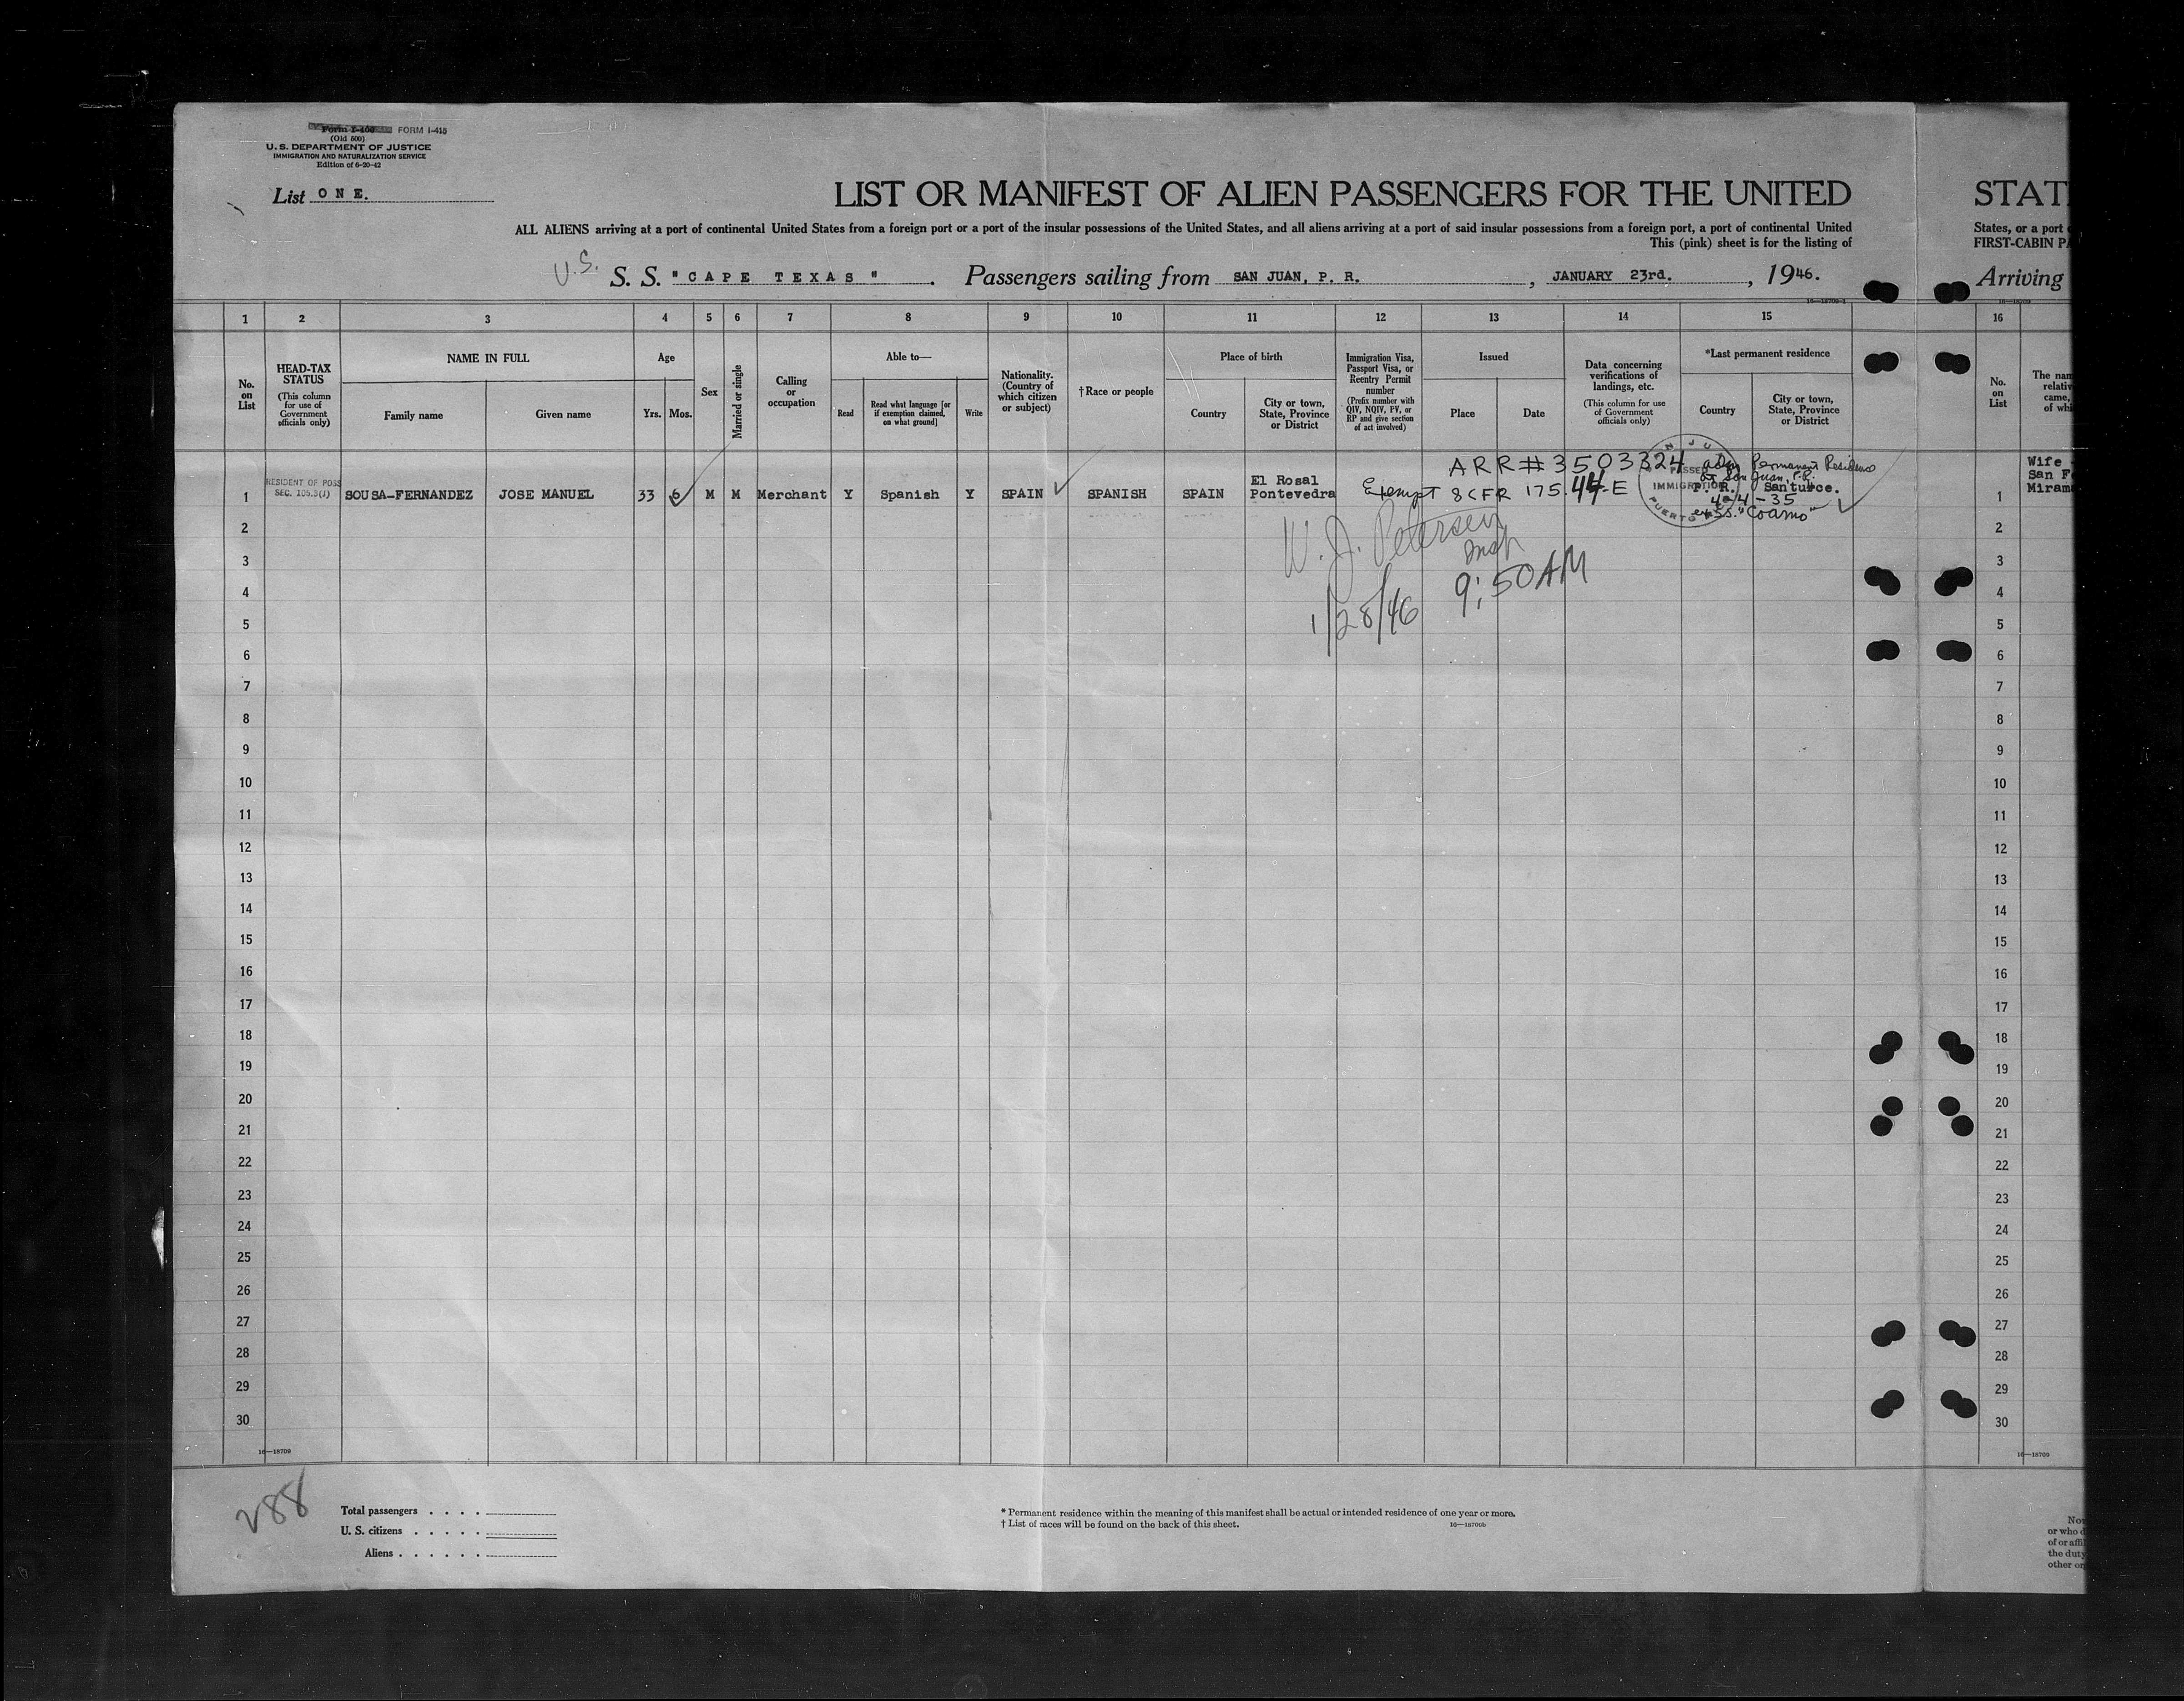 Form I-400 FORM I-415
(Old 500)
U. S. DEPARTMENT OF JUSTICE
IMMIGRATION AND NATURALIZATION SERVICE
Edition of 6-20-42
List ONE.
LIST OR MANIFEST OF ALIEN PASSENGERS FOR THE UNITED STAT
ALL ALIENS arriving at a port of continental United States from a foreign port or a port of the insular possessions of the United States, and all aliens arriving at a port of said insular possessions from a foreign port, a port of continental United States, or a port
This (pink) sheet is for the listing of FIRST-CABIN PA
U.S. S. S. "CAPE TEXAS". Passengers sailing from SAN JUAN, P. R., JANUARY 23rd., 1946. Arriving
16—18709-1
1 2 3 4 5 6 7 8 9 10 11 12 13 14 15 16
No. on List
HEAD-TAX STATUS
(This column for use of Government officials only)
NAME IN FULL
Family name
Given name
Age
Yrs. Mos.
Sex
Married or single
Calling or occupation
Able to—
Read
Read what language [or if exemption claimed, on what ground]
Write
Nationality. (Country of which citizen or subject)
† Race or people
Place of birth
Country
City or town, State, Province or District
Immigration Visa, Passport Visa, or Reentry Permit number
(Prefix number with QIV, NQIV, PV, or RP and give section of act involved)
Issued
Place
Date
Data concerning verifications of landings, etc.
(This column for use of Government officials only)
*Last permanent residence
Country
City or town, State, Province or District
No. on List
The nam
relativ
came,
of whi
RESIDENT OF POSS
SEC. 105.3(J)
1 SOUSA-FERNANDEZ JOSE MANUEL 33 6 M M Merchant Y Spanish Y SPAIN SPANISH SPAIN El Rosal Pontevedra
ARR # 3503324
Exempt 8 CFR 175.44-E
Adm Permanent Residence
at San Juan, P.R.
P. R. Santurce.
4-4-35
ex SS. "Coamo"
IMMIGRATION
Wife
San F
Miram
W. J. Petersen
Insp
1/28/46 9:50 AM
1 1
2 2
3 3
4 4
5 5
6 6
7 7
8 8
9 9
10 10
11 11
12 12
13 13
14 14
15 15
16 16
17 17
18 18
19 19
20 20
21 21
22 22
23 23
24 24
25 25
26 26
27 27
28 28
29 29
30 30
16—18709 16—18709
288
Total passengers . . . .
U. S. citizens . . . . .
Aliens . . . . . .
* Permanent residence within the meaning of this manifest shall be actual or intended residence of one year or more.
† List of races will be found on the back of this sheet.
Not
or who d
of or affil
the duty
other or